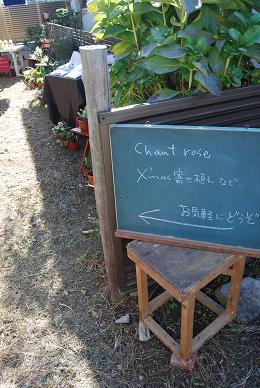 Chant rose
X'mas 寄せ植えなど
お気軽にどうぞ